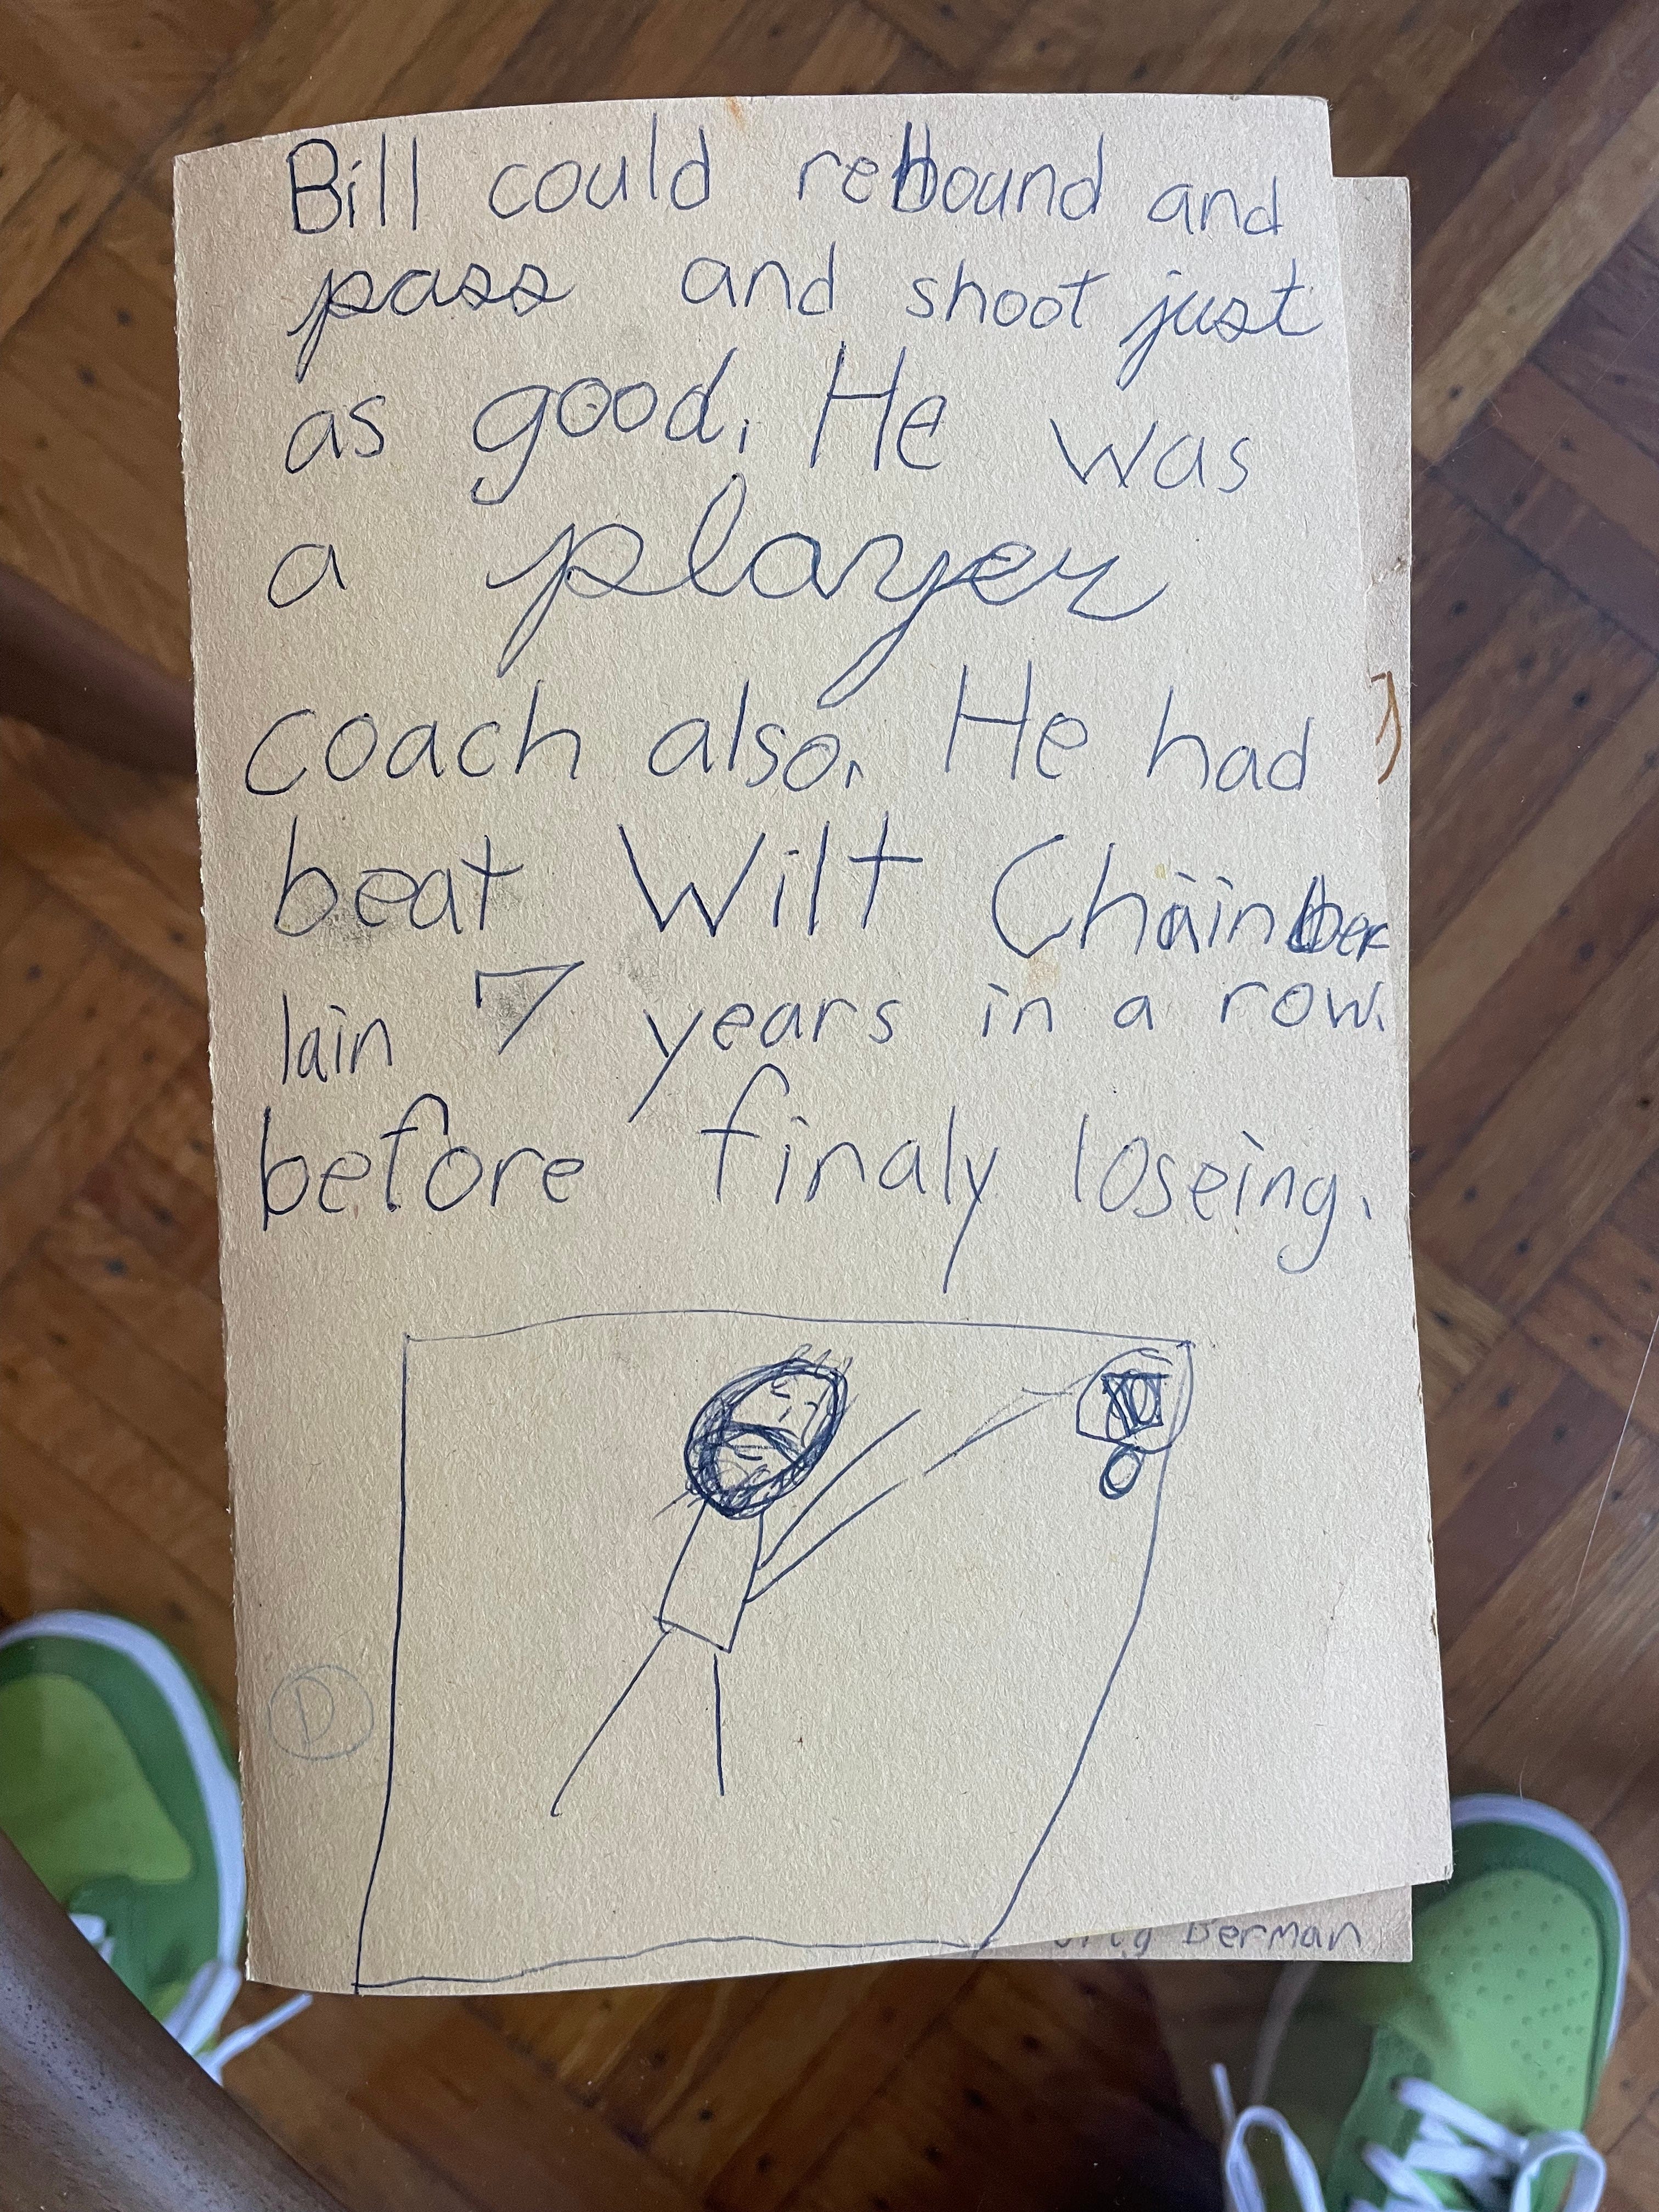 Bill could rebound and
pass and shoot just
as good. He was
a player
coach also. He had
beat Wilt Chainber
lain 7 years in a row.
before finaly loseing.
D
Berman